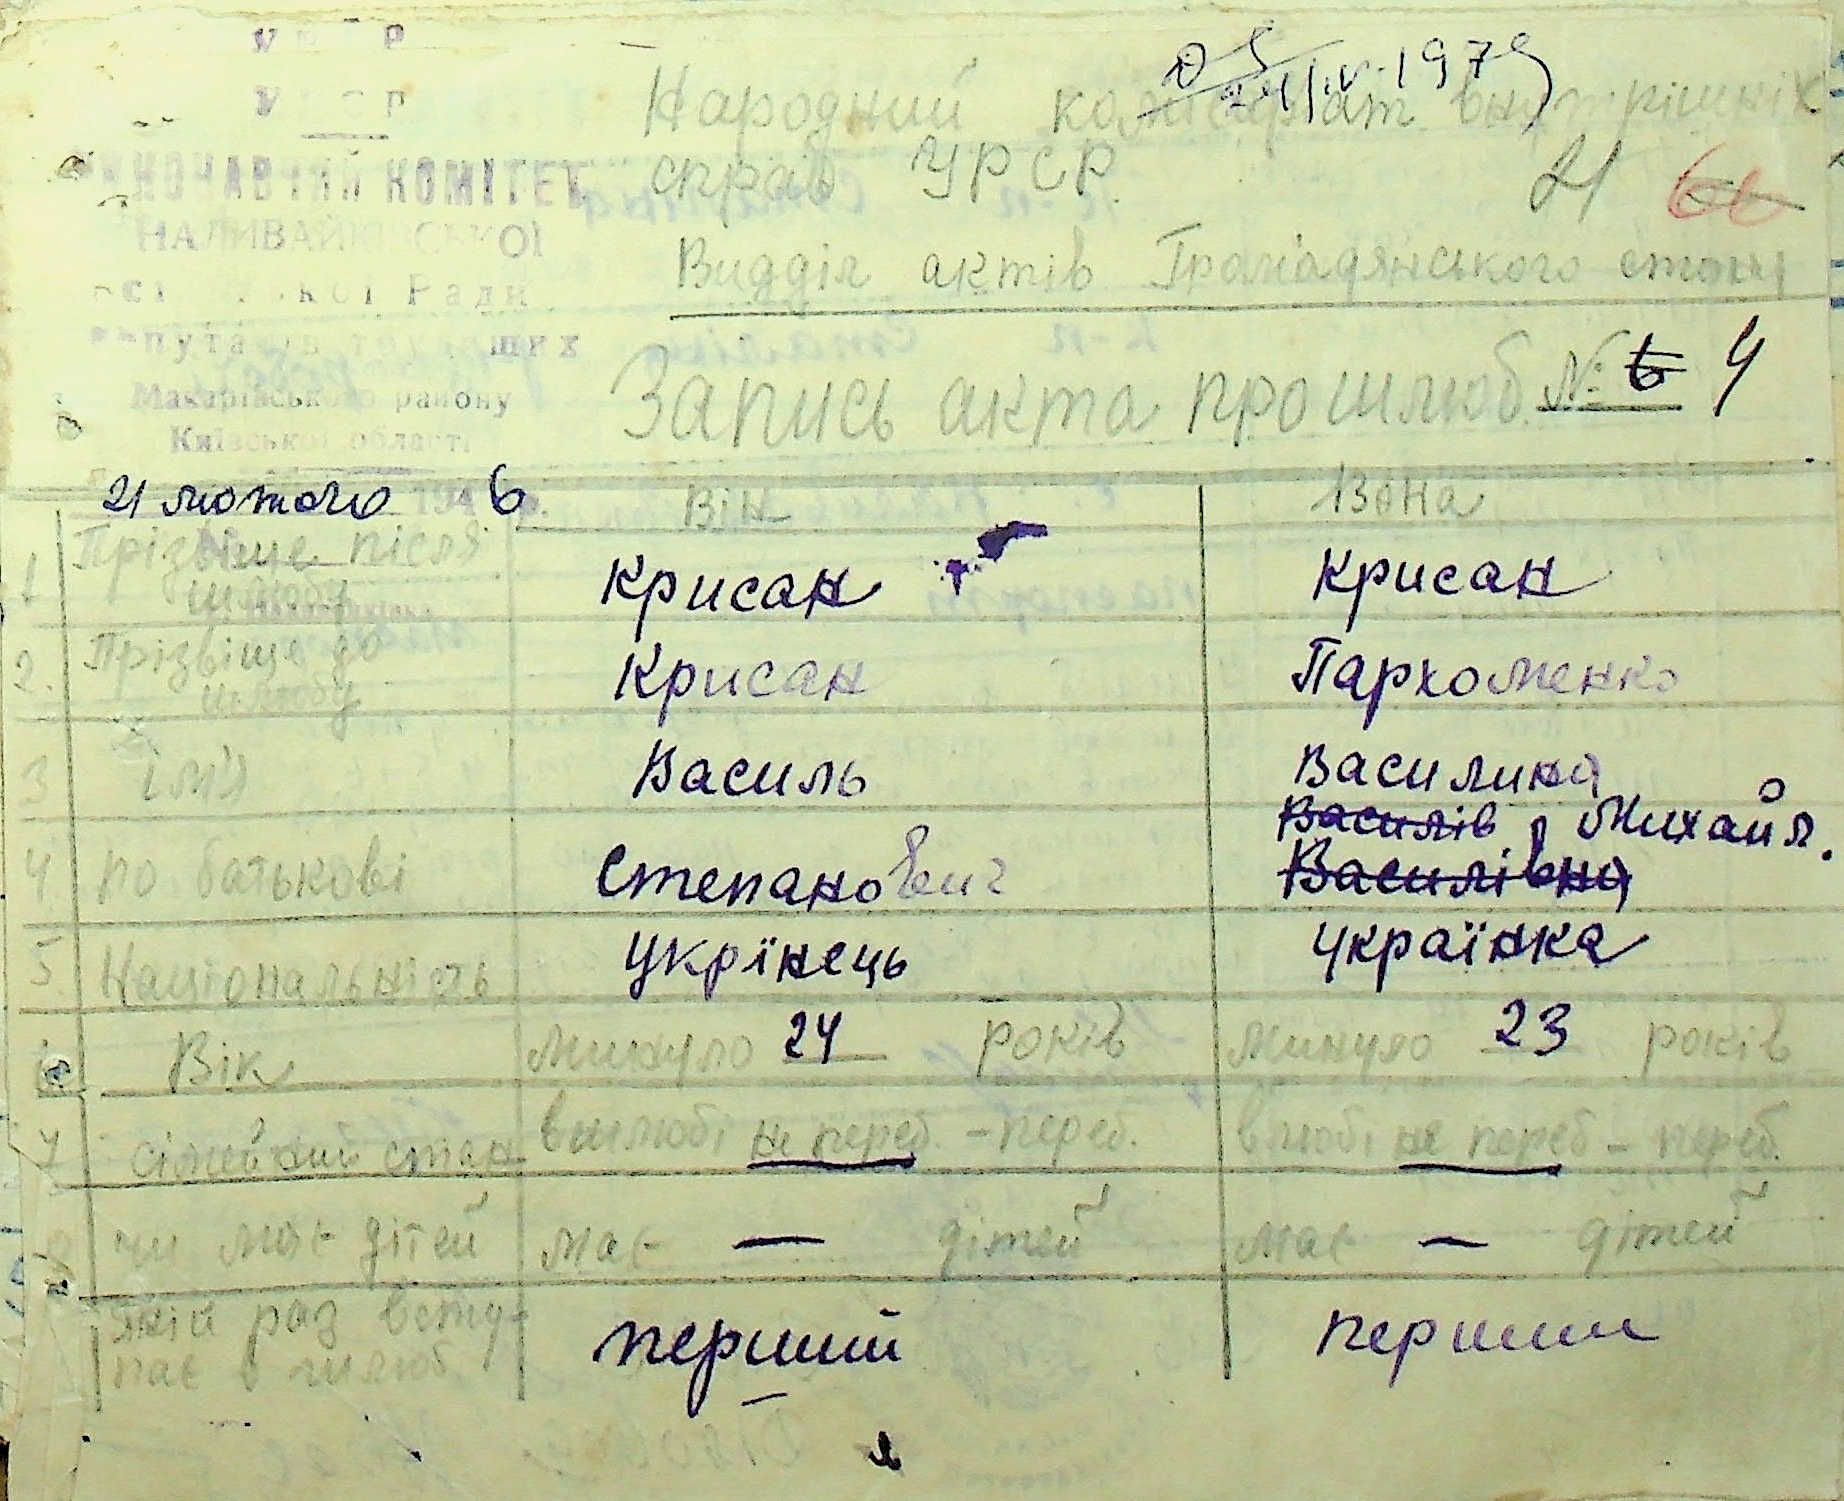 У Р
У Р
ВИКОНАВЧИЙ КОМІТЕТ
НАЛИВАЙКІВСЬКОЇ
сільської Ради
депутатів трудящих
Макарівського району
Київської області
21 лютого 194 6 р.
24/IV-1979
Народний комісаріат внутрішніх
справ УРСР.
21 66
Видділ актів Громадянського стану
Запись акта про шлюб № 6 4
Він Вона
1 Прізвіще після шлюбу Крисан Крисан
2. Прізвіще до шлюбу Крисан Пархоменко
3 ім'я Василь Василина
Василів Михайл.
4 по батькові Степанович Василівна
5 Національність Укрїнець Українка
Вік минуло 24 років минуло 23 років
7 сімейний стан в шлюбі не переб. - переб. в люbі не переб - переб.
чи має дітей має — дітей має — дітей
Якій раз всту- перший перший
пає в шлюб.